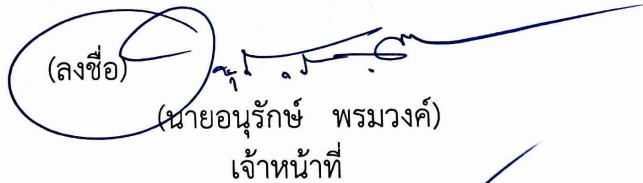 (ลงชื่อ)
(นายอนุรักษ์ พรมวงค์)
เจ้าหน้าที่